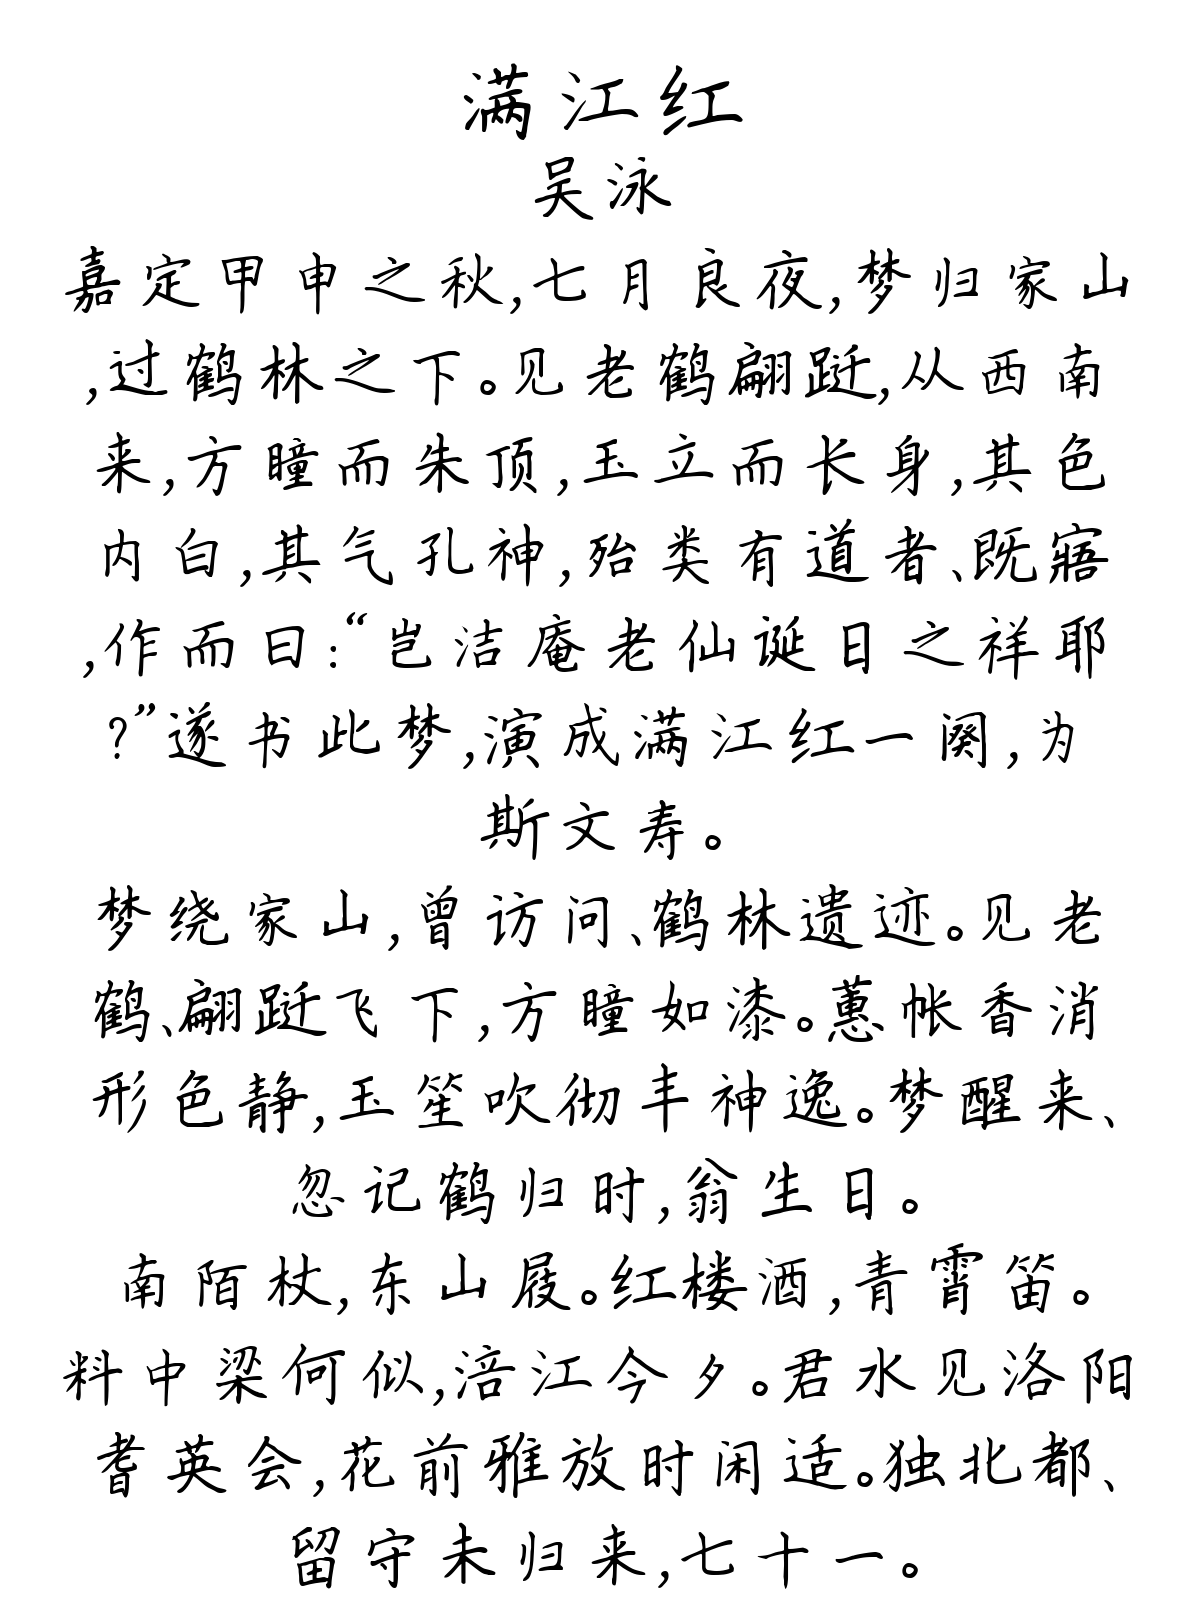 满江红
吴泳
嘉定甲申之秋,七月良夜,梦归家山
,过鹤林之下。见老鹤翩跹,从西南
来,方瞳而朱顶,玉立而长身,其色
内白,其气孔神,殆类有道者、既寤
,作而曰:“岂洁庵老仙诞日之祥耶
?”遂书此梦,演成满江红一阕,为
斯文寿。
梦绕家山,曾访问、鹤林遗迹。见老
鹤、翩跹飞下,方瞳如漆。蕙帐香消
形色静,玉笙吹彻丰神逸。梦醒来、
忽记鹤归时,翁生日。
南陌杖,东山屐。红楼酒,青霄笛。
料中梁何似,涪江今夕。君水见洛阳
耆英会,花前雅放时闲适。独北都、
留守未归来,七十一。